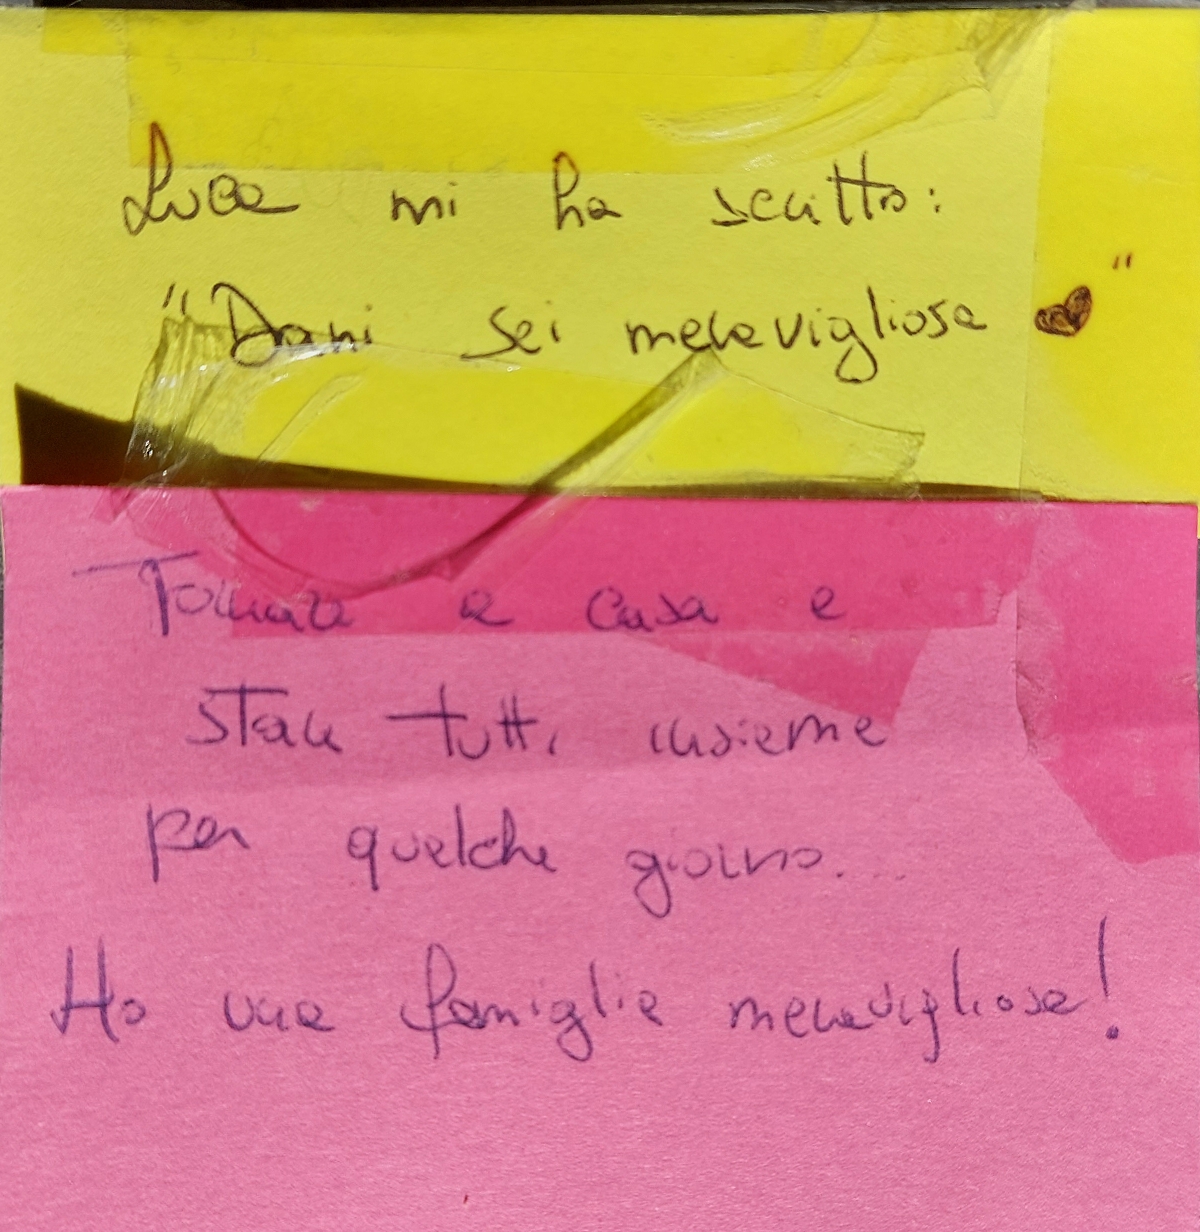 Luca mi ha scritto:
"Dani sei meravigliosa ♥"
Tornare a casa e
stare tutti insieme
per qualche giorno...
Ho una famiglia meravigliosa!